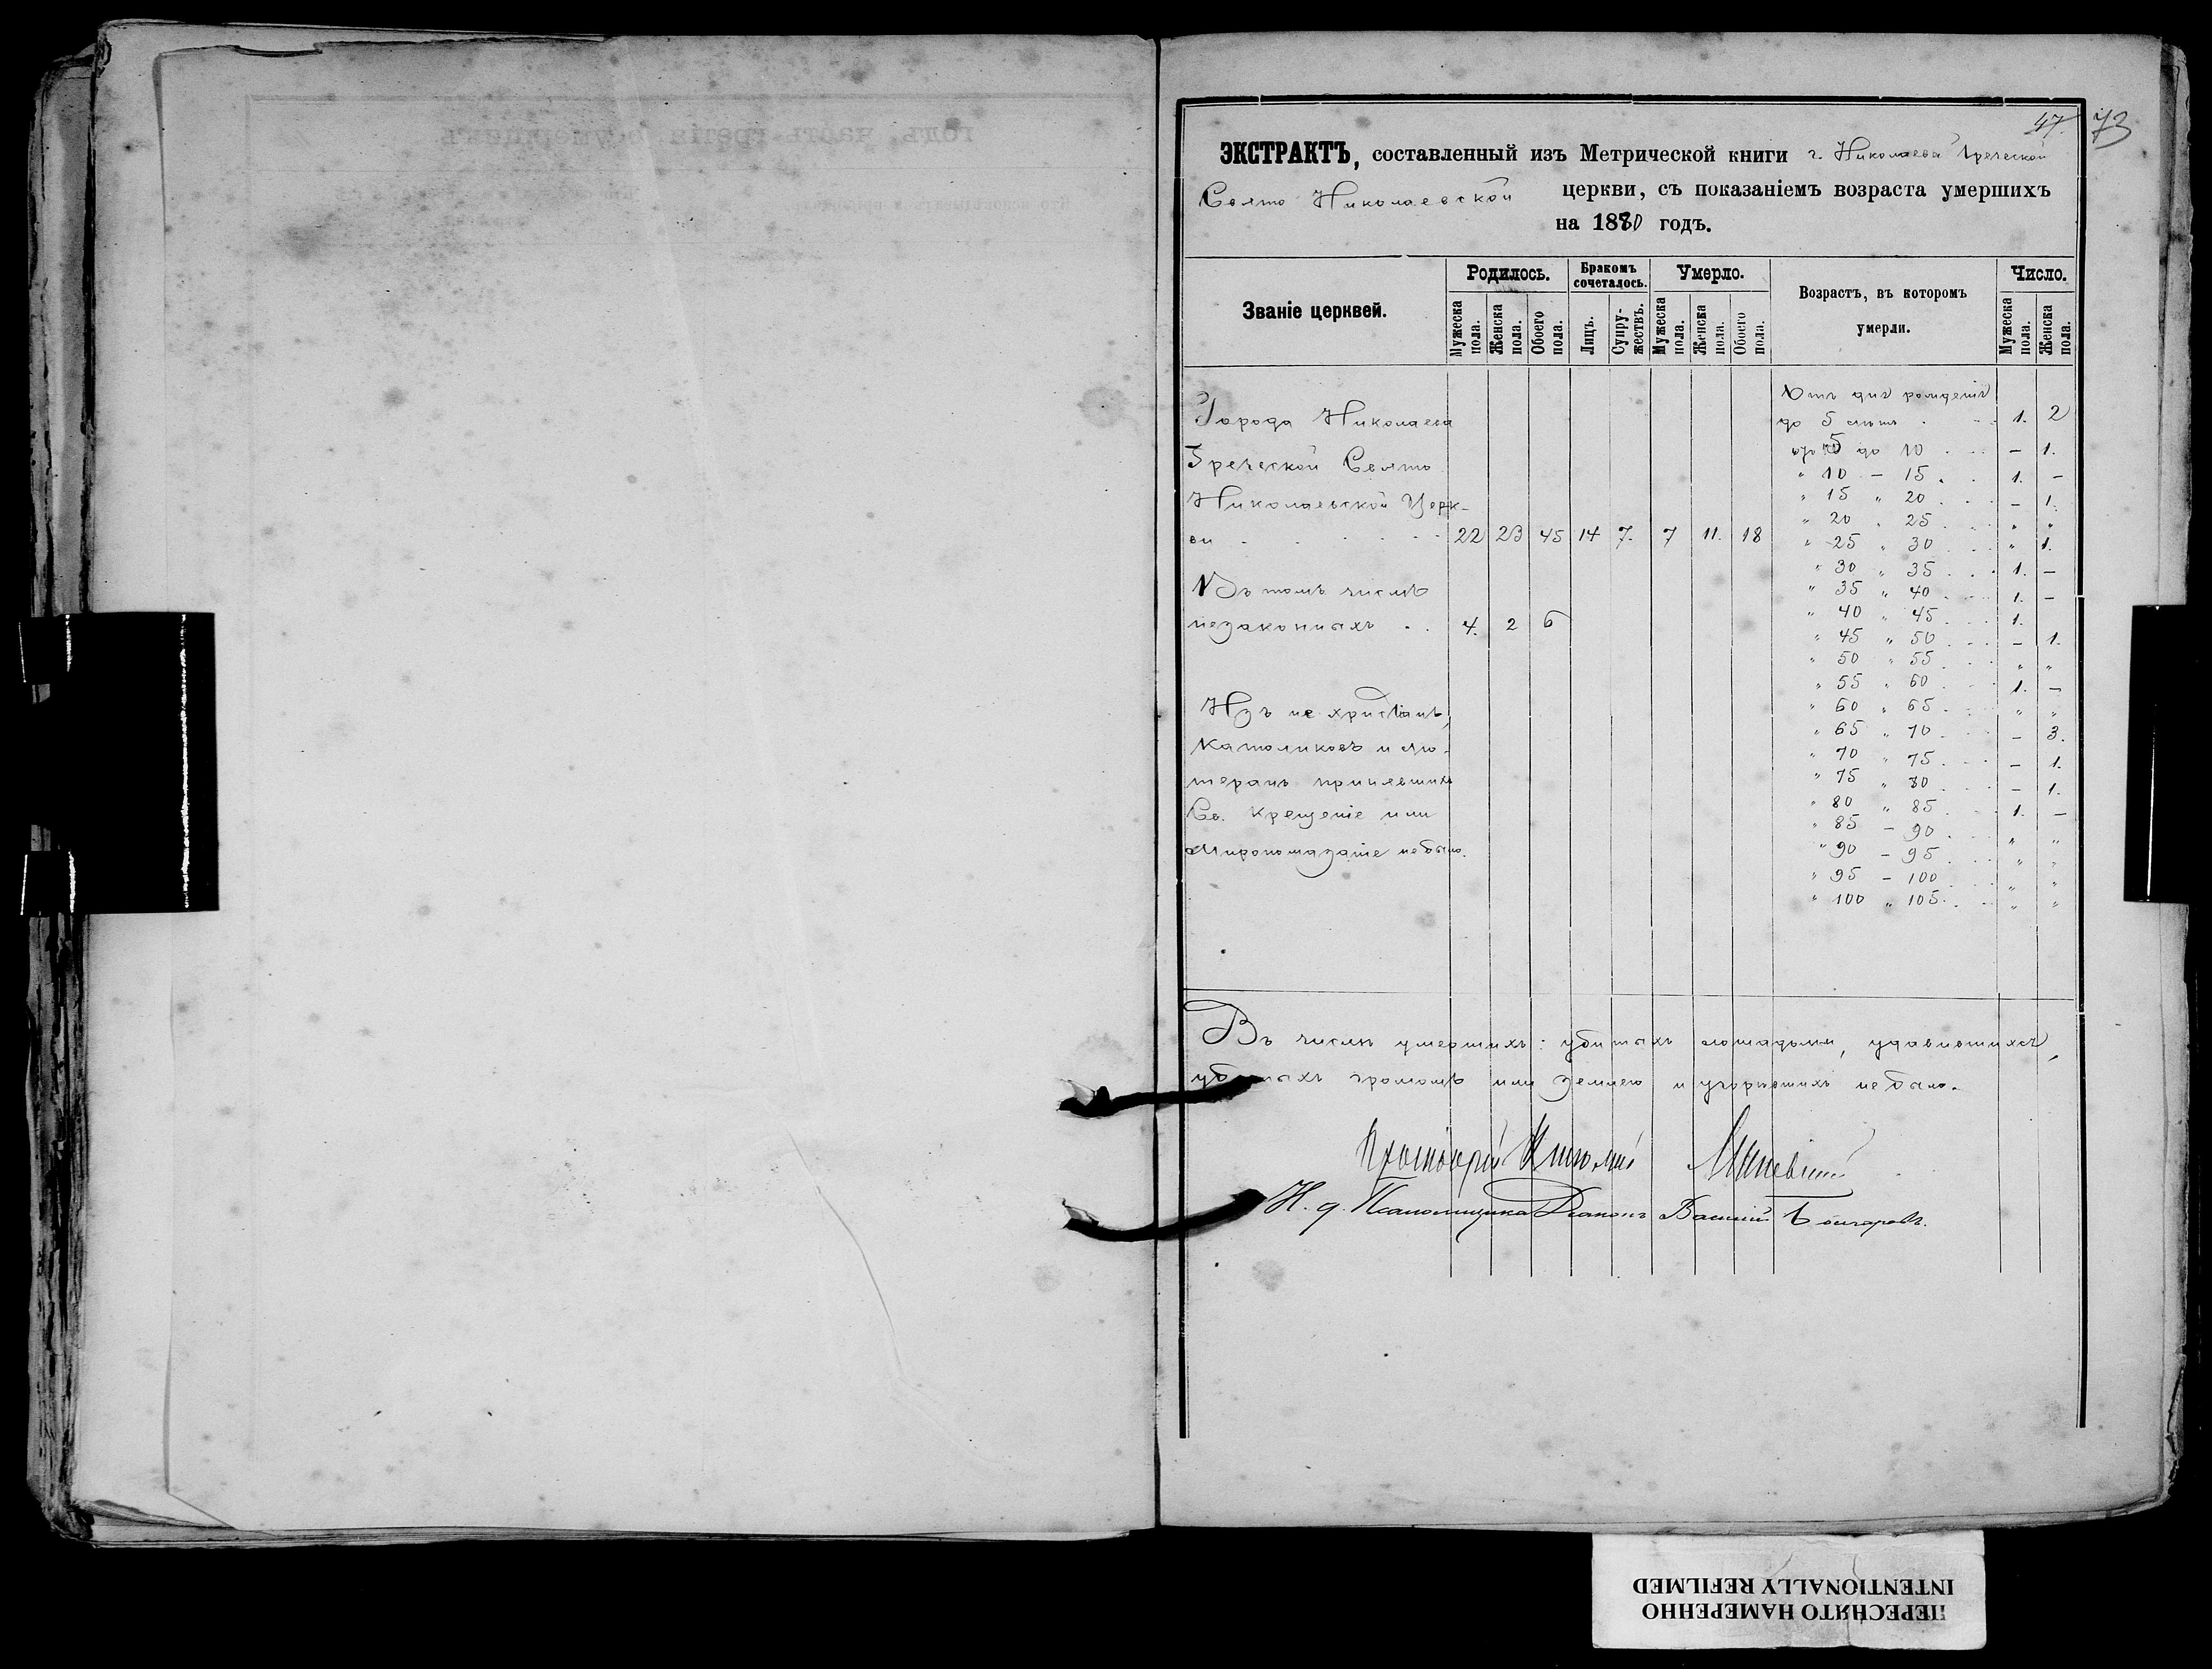 47. 73
ЭКСТРАКТЪ, составленный изъ Метрической книги г. Николаева Греческой
Свято Николаевской церкви, съ показаніемъ возраста умершихъ
на 1880 годъ.
Званіе церквей.
Родилось.
Бракомъ сочеталось.
Умерло.
Возрастъ, въ которомъ умерли.
Число.
Мужеска пола.
Женска пола.
Обоего пола.
Лицъ.
Супружествъ.
Мужеска пола.
Женска пола.
Обоего пола.
Мужеска пола.
Женска пола.
Города Николаева
Греческой Свято
Николаевской Церк-
ви . . . . . . 22 23 45 14 7. 7 11. 18
Въ томъ числѣ
незаконныхъ . . 4. 2 6
Изъ не христіанъ,
Католиковъ и лю-
теранъ принявшихъ
Св. Крещеніе или
Миропомазаніе не было.
Отъ дня рожденія
до 5 лѣтъ . . . 1. 2
отъ 5 до 10 . . . – 1.
" 10 – 15 . . 1. –
" 15 " 20 . . . – 1.
" 20 " 25 . . . " "
" 25 " 30 . . . " 1.
" 30 " 35 . . . 1. –
" 35 " 40 . . . 1. –
" 40 " 45 . . . 1.
" 45 " 50 . . . – 1.
" 50 " 55 . . . " "
" 55 " 60 . . . 1. –
" 60 " 65 . . . " "
" 65 " 70 . . . – 3.
" 70 " 75 . . . – 1.
" 75 " 80 . . . – 1.
" 80 " 85 . . . 1. –
" 85 – 90 . . . " "
" 90 – 95 . . . " "
" 95 – 100 . . . " "
" 100 " 105 . . . " "
Въ числѣ умершихъ: убитыхъ лошадьми, удавившихся,
убитыхъ громомъ или землею и угорѣвшихъ не было.
Протоіерей Николай
И. д. Псаломщика Діаконъ Василій
ПЕРЕСНЯТО НАМЕРЕННО
INTENTIONALLY REFILMED